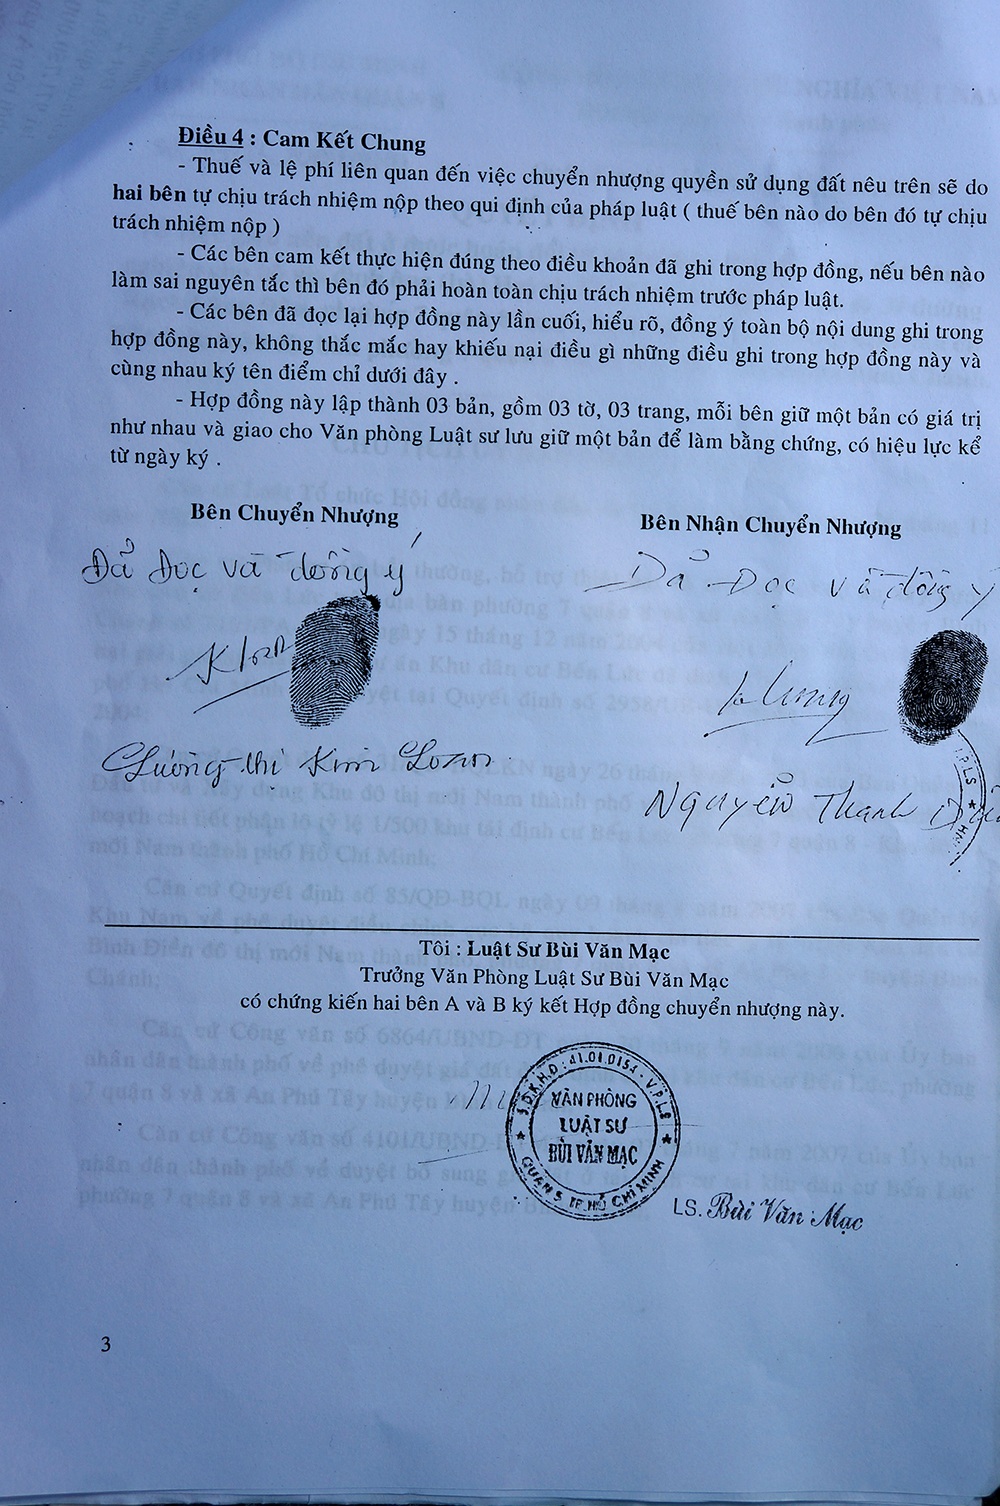 Điều 4 : Cam Kết Chung
- Thuế và lệ phí liên quan đến việc chuyển nhượng quyền sử dụng đất nêu trên sẽ do
hai bên tự chịu trách nhiệm nộp theo qui định của pháp luật ( thuế bên nào do bên đó tự chịu
trách nhiệm nộp )
- Các bên cam kết thực hiện đúng theo điều khoản đã ghi trong hợp đồng, nếu bên nào
làm sai nguyên tắc thì bên đó phải hoàn toàn chịu trách nhiệm trước pháp luật.
- Các bên đã đọc lại hợp đồng này lần cuối, hiểu rõ, đồng ý toàn bộ nội dung ghi trong
hợp đồng này, không thắc mắc hay khiếu nại điều gì những điều ghi trong hợp đồng này và
cùng nhau ký tên điểm chỉ dưới đây .
- Hợp đồng này lập thành 03 bản, gồm 03 tờ, 03 trang, mỗi bên giữ một bản có giá trị
như nhau và giao cho Văn phòng Luật sư lưu giữ một bản để làm bằng chứng, có hiệu lực kể
từ ngày ký .
Bên Chuyển Nhượng
Bên Nhận Chuyển Nhượng
Đả Đọc và đồng ý
Dả Đọc và đồng ý
Kloan
Lương thị Kim Loan
Nguyễn Thanh
V.P.LS
Tôi : Luật Sư Bùi Văn Mạc
Trưởng Văn Phòng Luật Sư Bùi Văn Mạc
có chứng kiến hai bên A và B ký kết Hợp đồng chuyển nhượng này.
S.Đ.K.H.Đ : 41.01.0154 - V.P.L.S
VĂN PHÒNG
LUẬT SƯ
BÙI VĂN MẠC
QUẬN 5 TP. HỒ CHÍ MINH
LS. Bùi Văn Mạc
3